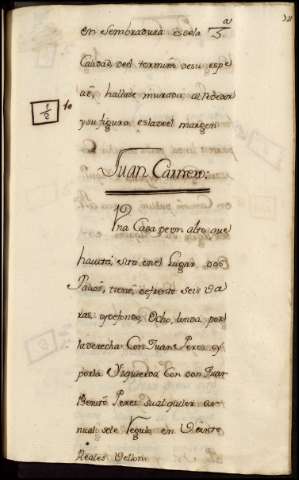 en sembradura es de la 5ª
Calidad del termino de su espe
cie, hallase murada al rededor
y su figura es la del margen
Juan Carrero:
Una Casa de un alto que
havita, sito en el Lugar dos
tiene de frente seis Va
ras, y de fondo Ocho, linda por
la derecha Con Juan Perez, y
por la Izquierda Con con Juan
Benito Perez su alquiler an
nual se le Regula en Veinte
Reales Vellon